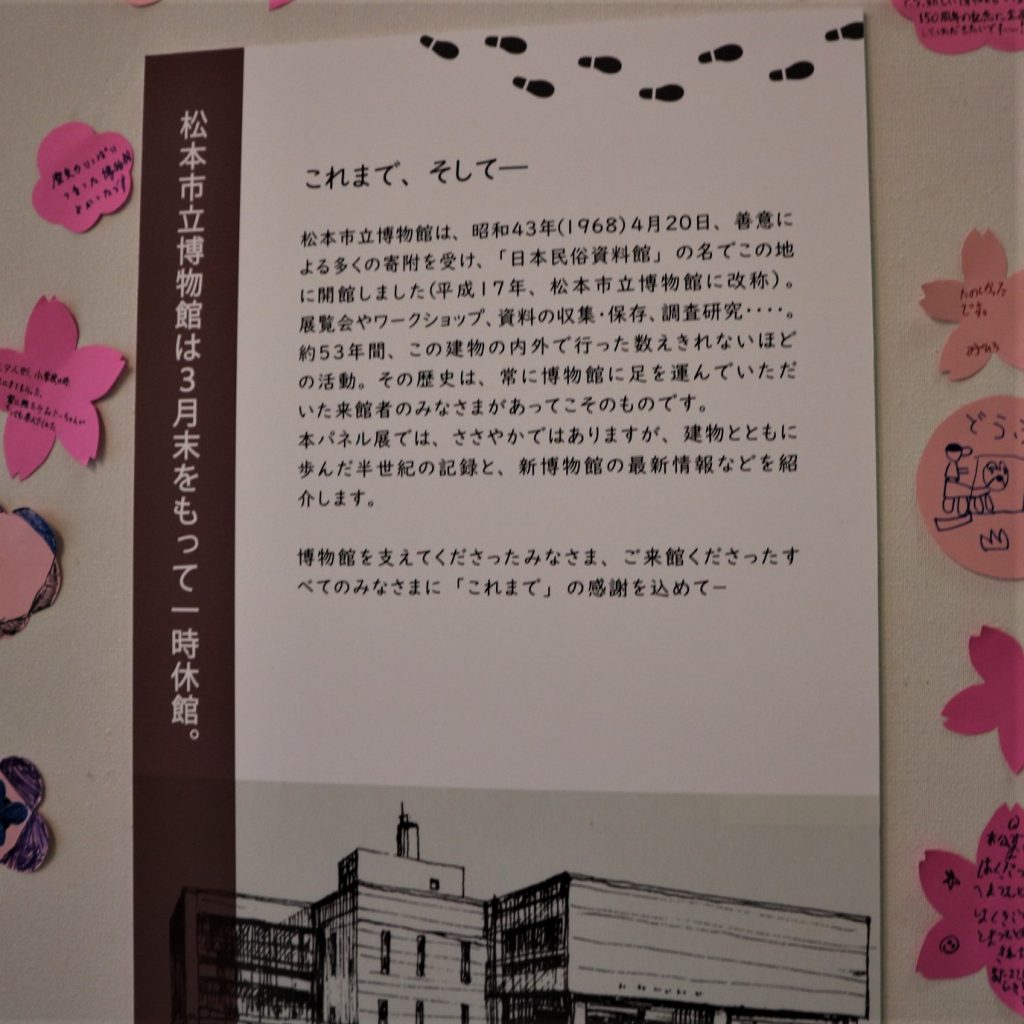 松本市立博物館は3月末をもって一時休館。
これまで、そして―
松本市立博物館は、昭和43年(1968)4月20日、善意に
よる多くの寄附を受け、「日本民俗資料館」の名でこの地
に開館しました(平成17年、松本市立博物館に改称)。
展覧会やワークショップ、資料の収集・保存、調査研究・・・・。
約53年間、この建物の内外で行った数えきれないほど
の活動。その歴史は、常に博物館に足を運んでいただ
いた来館者のみなさまがあってこそのものです。
本パネル展では、ささやかではありますが、建物とともに
歩んだ半世紀の記録と、新博物館の最新情報などを紹
介します。
博物館を支えてくださったみなさま、ご来館くださったす
べてのみなさまに「これまで」の感謝を込めて―
たのしかった
です。
どうぶ